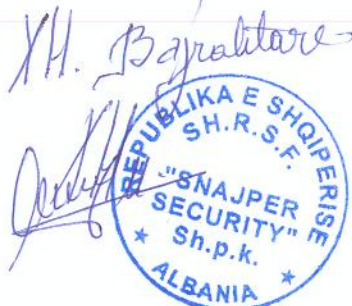 XH. Bajraktare
REPUBLIKA E SHQIPERISE
SH.R.S.F.
"SNAJPER
SECURITY"
Sh.p.k.
* ALBANIA *